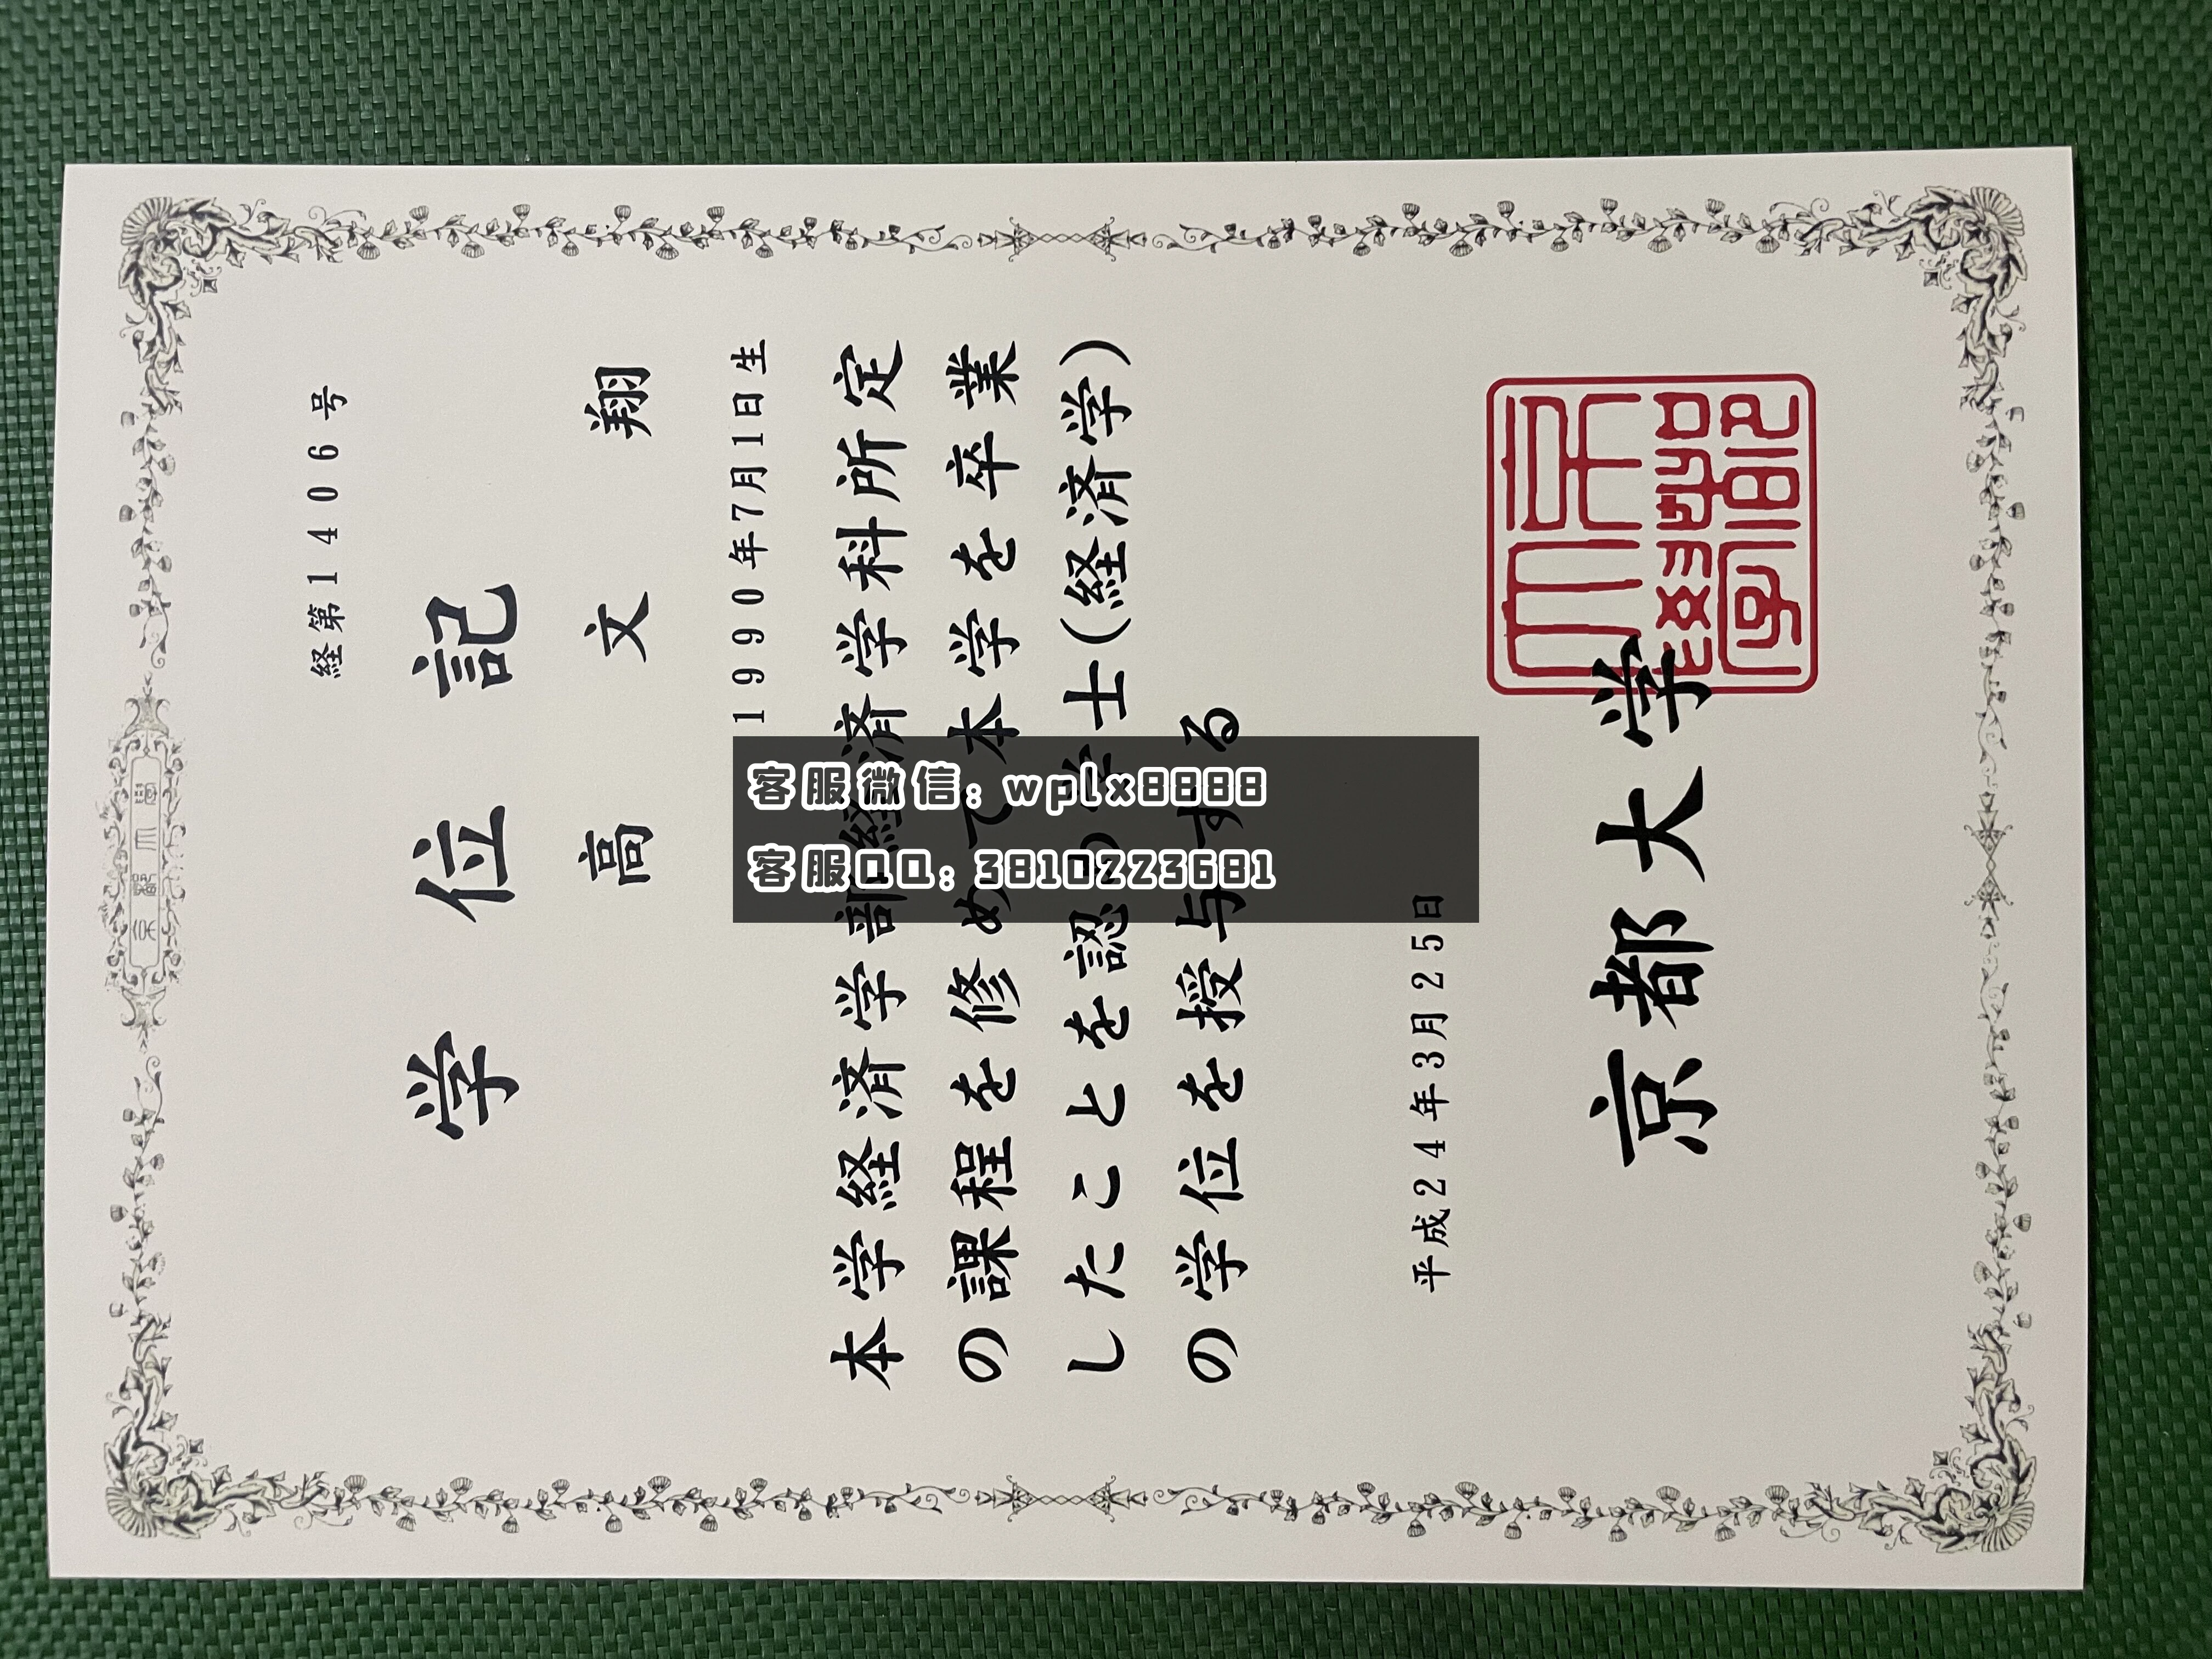 経第11406号
学位記
高文翔
1990年7月1日生
本学経済学部経済学科所定
の課程を修めて本学を卒業
したことを認め学士(経済学)
の学位を授与する
平成24年3月25日
京都大学
客服微信: wplx8888
客服QQ: 3810223681